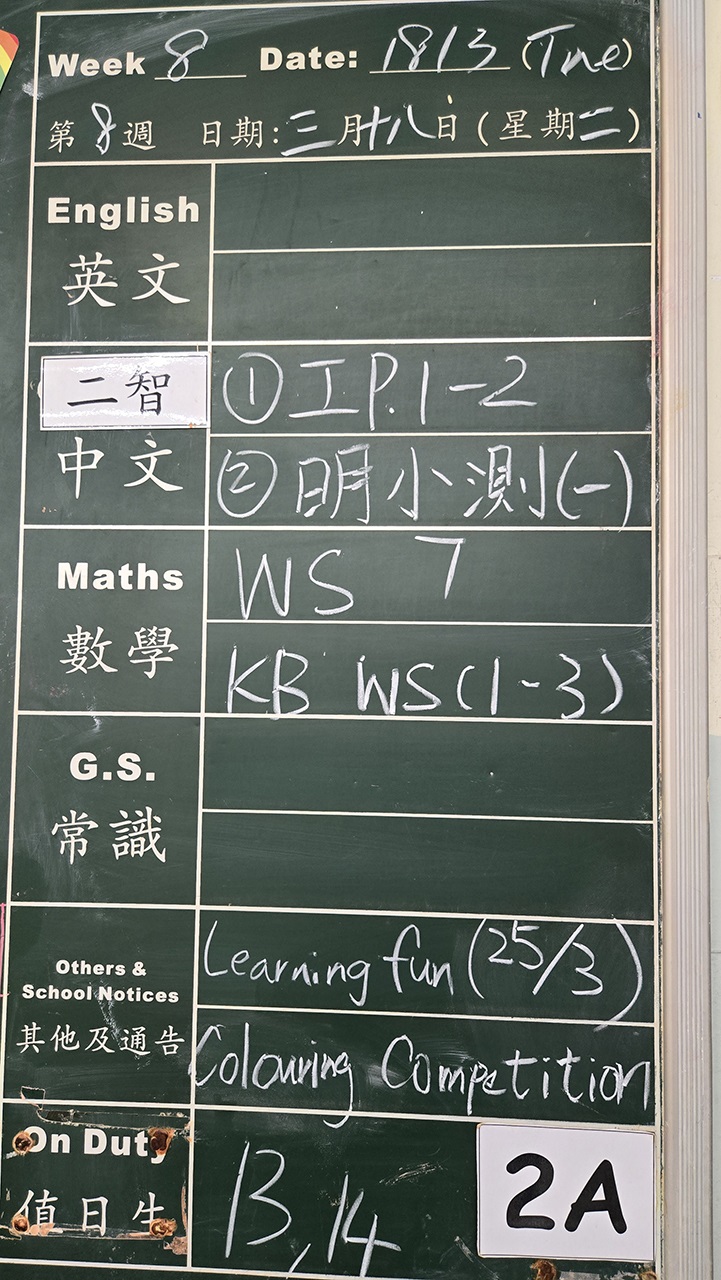 Week 8 Date: 18/3 (Tue)
第8週 日期:三月十八日(星期二)
English
英文
二智
中文
① 工P.1-2
② 明小測(一)
Maths
數學
WS 7
KB WS(1-3)
G.S.
常識
Others &
School Notices
其他及通告
Learning fun (25/3)
Colouring Competition
On Duty
值日生
13, 14
2A